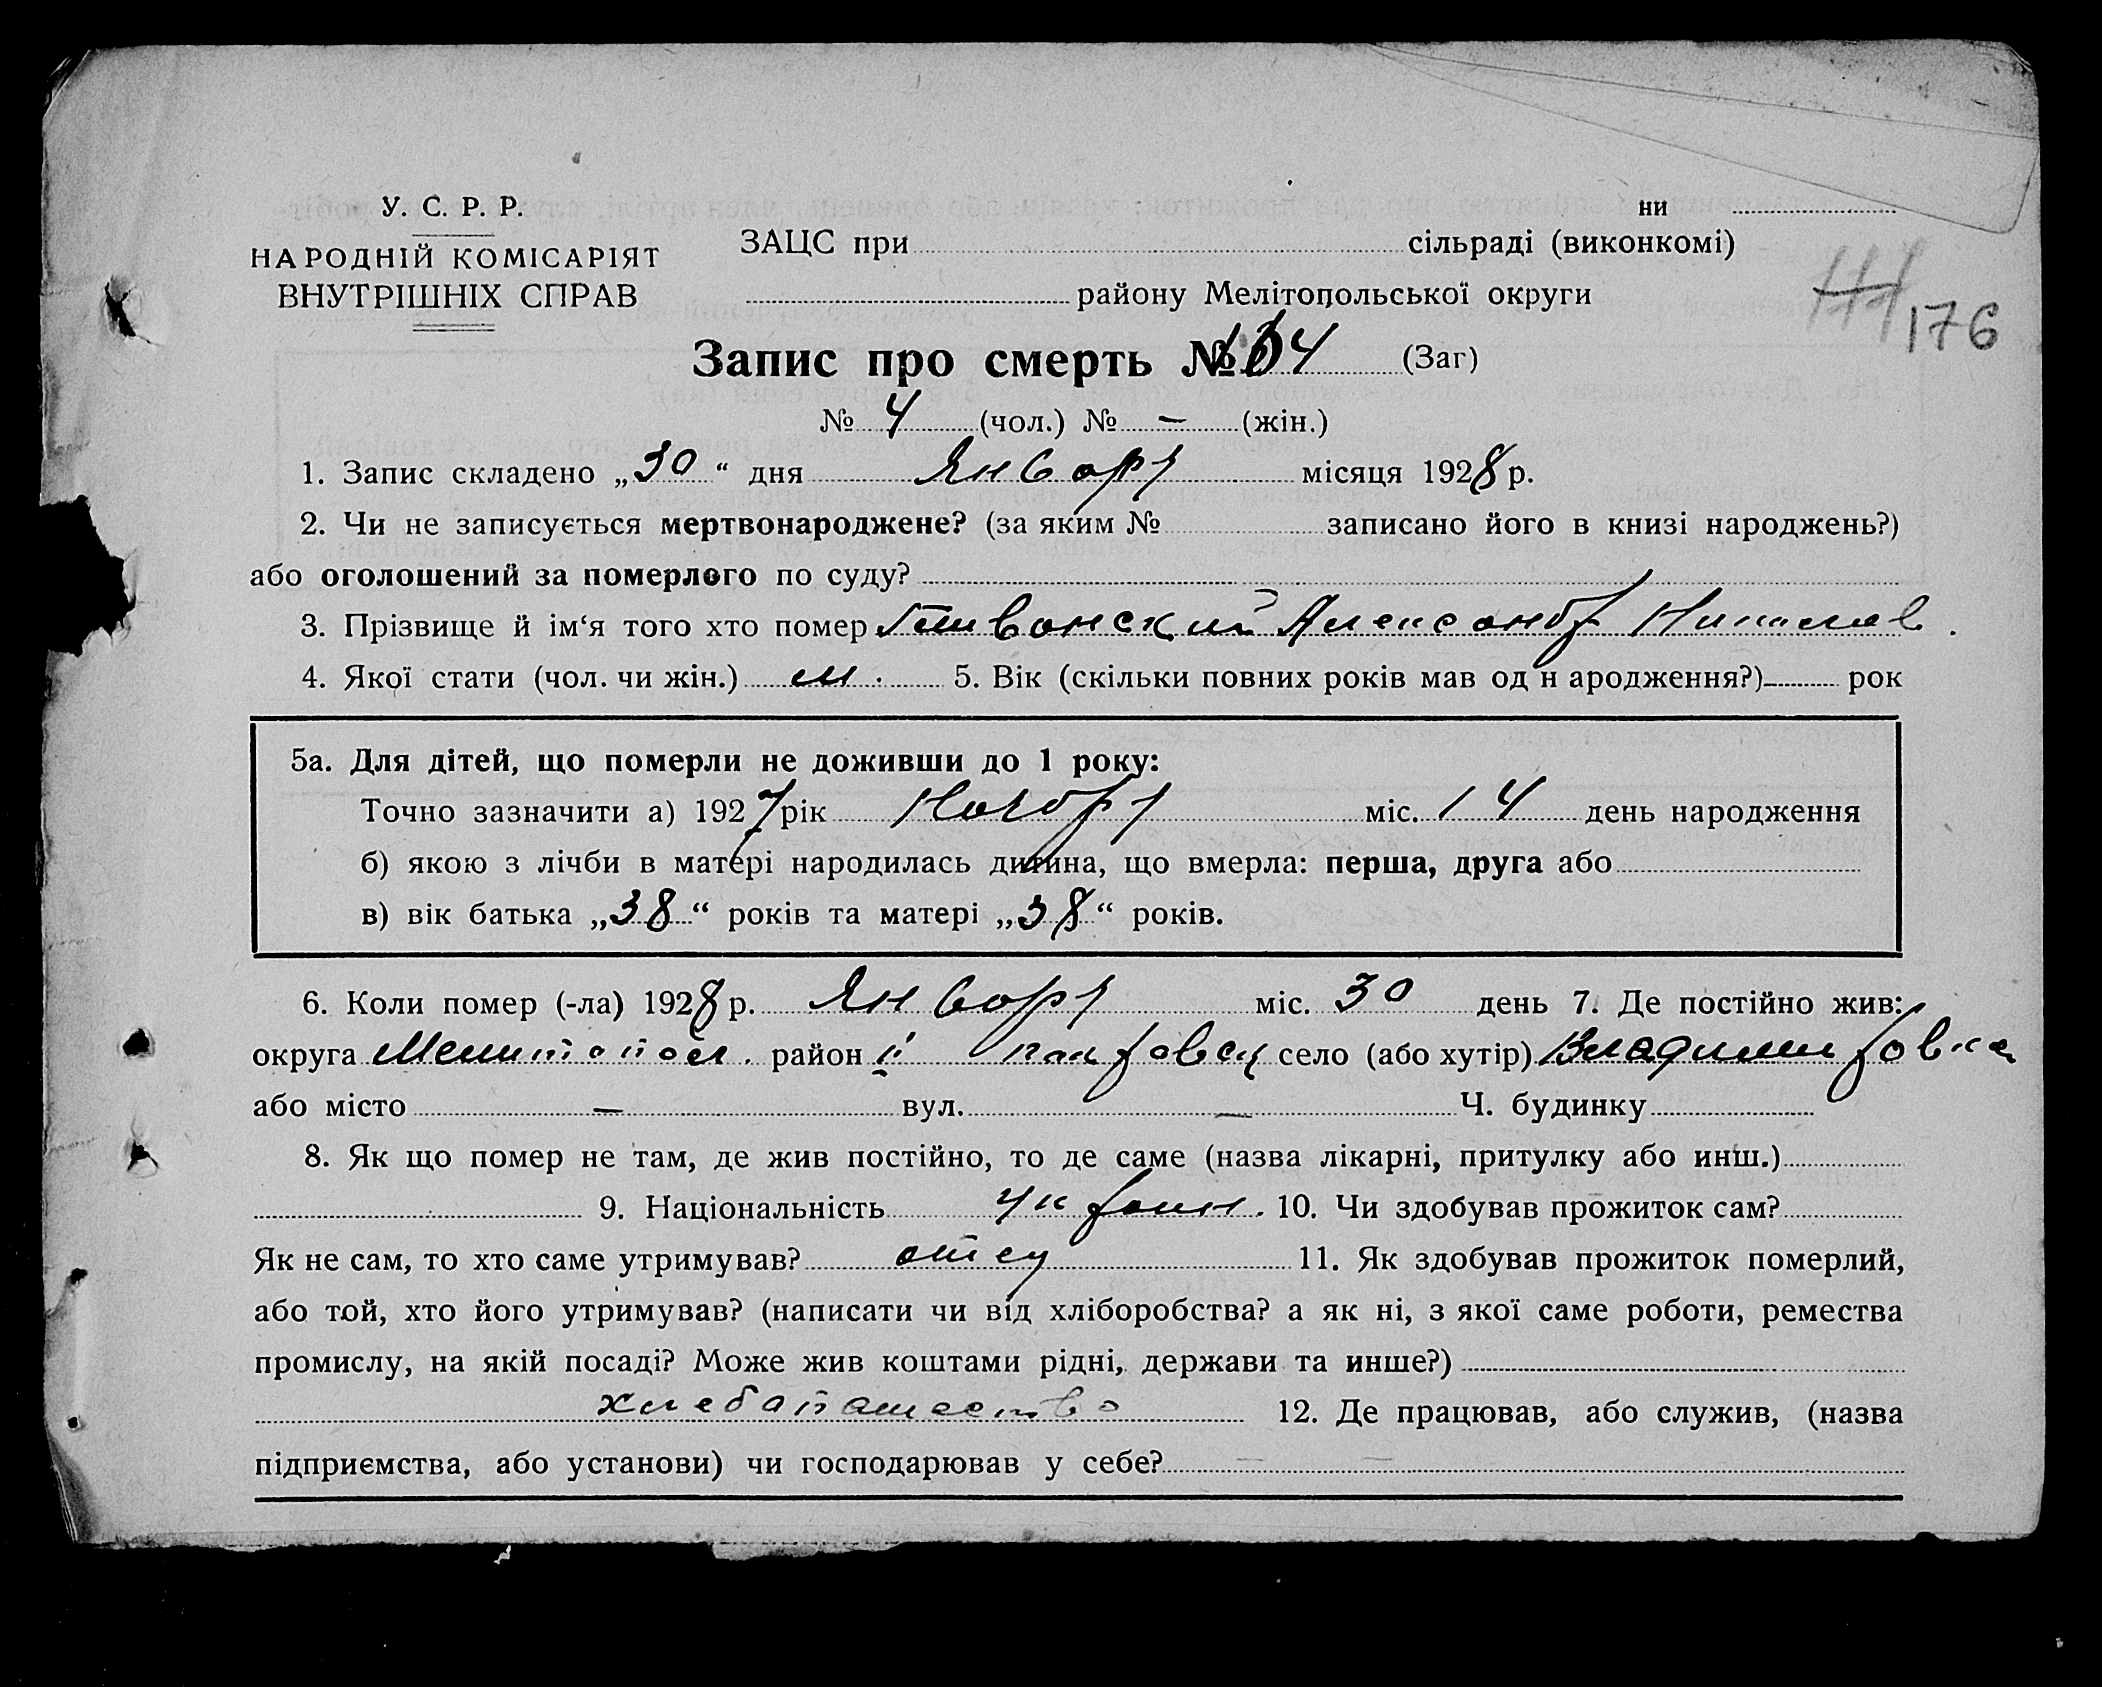 У. С. Р. Р.
НАРОДНІЙ КОМІСАРІЯТ
ВНУТРІШНІХ СПРАВ
ни
ЗАЦС при сільраді (виконкомі)
району Мелітопольської округи
176
Запис про смерть № 4 (Заг)
№ 4 (чол.) № — (жін.)
1. Запис складено „30“ дня Январ місяця 1928 р.
2. Чи не записується мертвонароджене? (за яким № записано його в книзі народжень?)
або оголошений за померлого по суду?
3. Прізвище й ім‘я того хто помер Александр
4. Якої стати (чол. чи жін.) м. 5. Вік (скільки повних років мав од н ародження?) рок
5а. Для дітей, що померли не доживши до 1 року:
Точно зазначити а) 1927 рік Ноябр міс. 14 день народження
б) якою з лічби в матері народилась дитина, що вмерла: перша, друга або
в) вік батька „38“ років та матері „38“ років.
6. Коли помер (-ла) 1928 р. Январ міс. 30 день 7. Де постійно жив:
округа Мелитопол. район село (або хутір) Владимировка
або місто — вул. — Ч. будинку
8. Як що помер не там, де жив постійно, то де саме (назва лікарні, притулку або инш.)
9. Національність украин. 10. Чи здобував прожиток сам?
Як не сам, то хто саме утримував? отец 11. Як здобував прожиток померлий,
або той, хто його утримував? (написати чи від хліборобства? а як ні, з якої саме роботи, ремества
промислу, на якій посаді? Може жив коштами рідні, держави та инше?)
хлебопашество 12. Де працював, або служив, (назва
підприємства, або установи) чи господарював у себе?